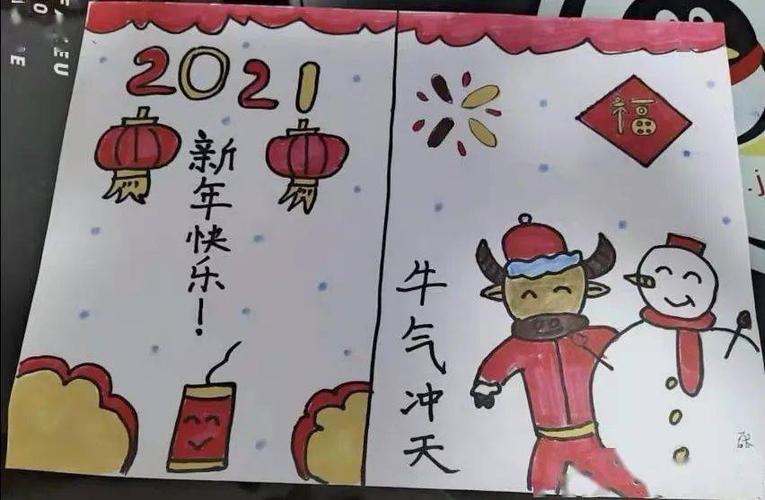 2021
新年快乐!
福
牛气冲天